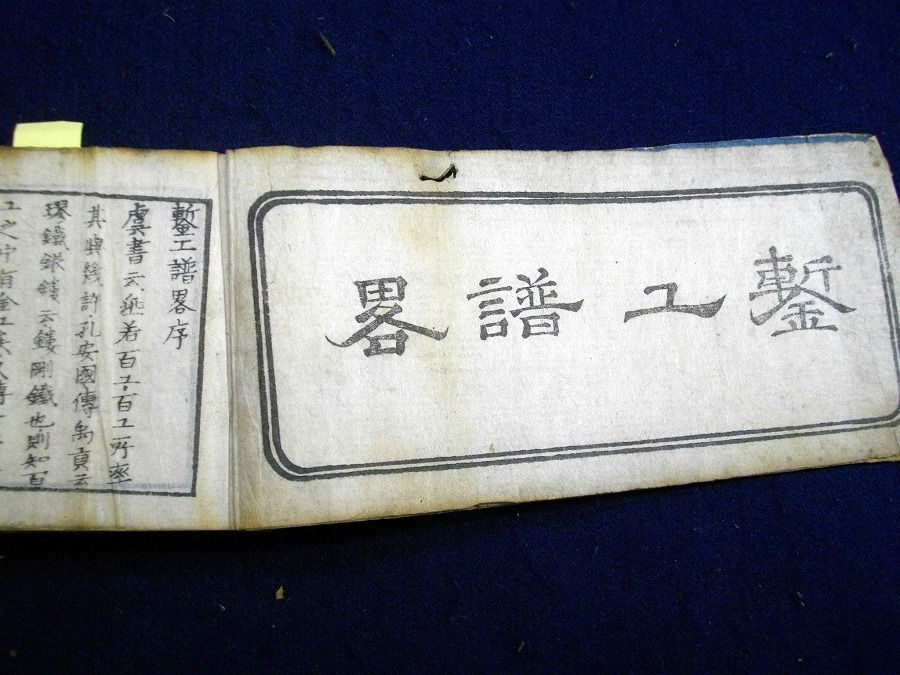 鏨工譜畧
鏨工譜畧序
虞書云疇若百工百工所率
其典幾許孔安國傳禹貢云
璆鐵銀鏤云鏤剛鐵也則知百
工之中有金工